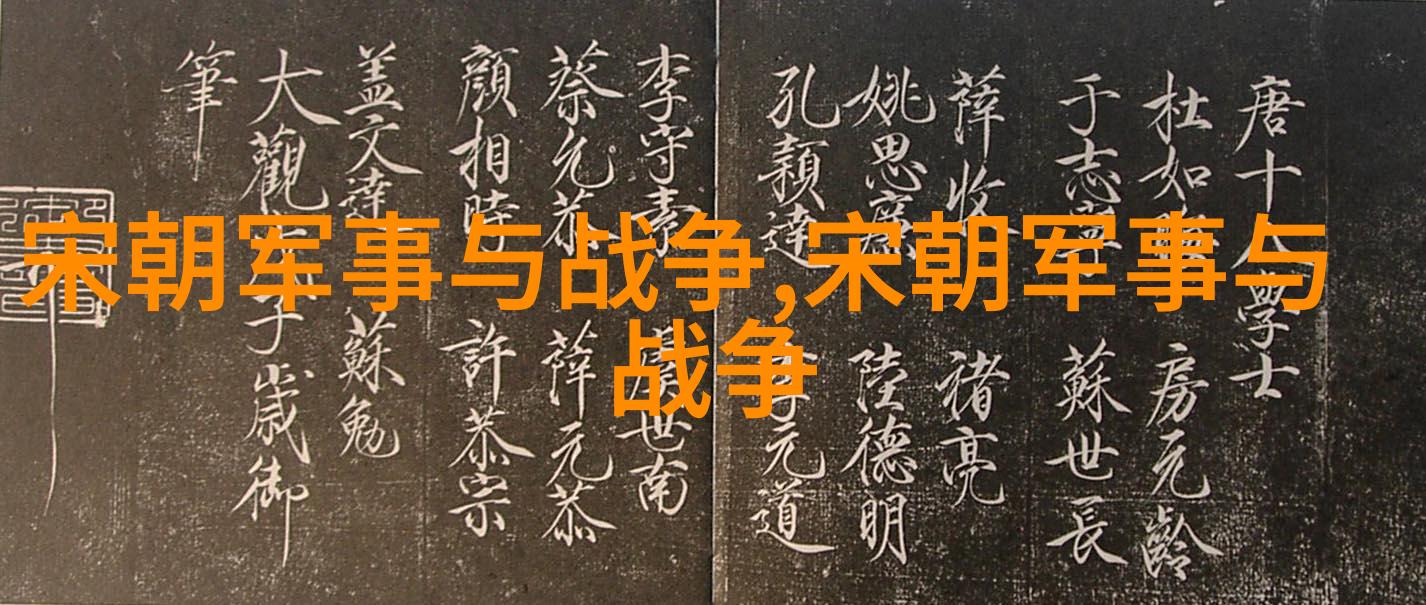 宋朝军事与战争,宋朝军事与
战争
唐十學士
杜如 房元齡
于志 蘇世長
薛收 褚亮
姚思 陸德明
孔穎達 元道
李守素 世南
蔡元恭 薛元恭
顏相時 許恭宗
盖文達 蘇勉
大觀子歲御
筆